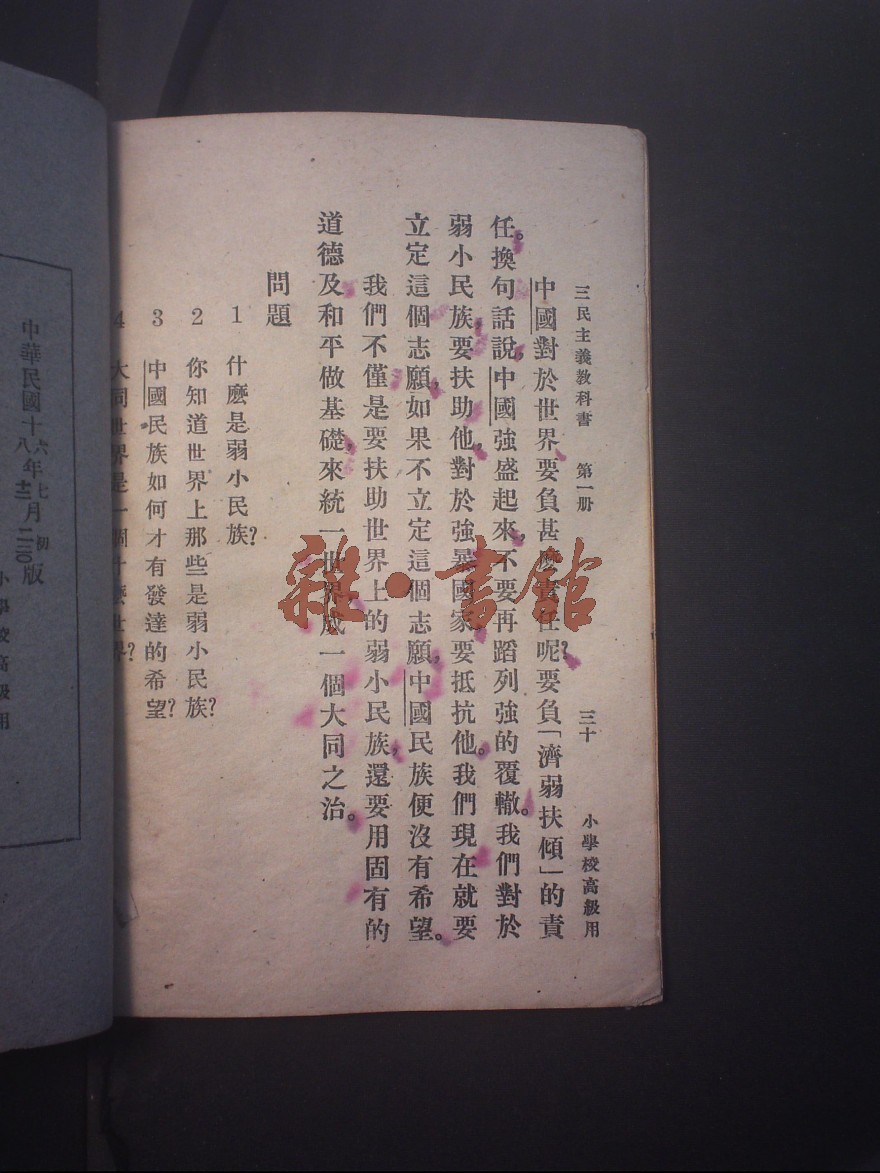 三民主義教科書 第一册 三十 小學校高級用
中國對於世界要負甚麼責任呢?要負「濟弱扶傾」的責
任。換句話說,中國強盛起來,不要再蹈列強的覆轍。我們對於
弱小民族,要扶助他,對於強暴國家,要抵抗他。我們現在就要
立定這個志願,如果不立定這個志願,中國民族便沒有希望。
我們不僅是要扶助世界上的弱小民族,還要用固有的
道德及和平做基礎,來統一世界,成一個大同之治。
問題
1 什麼是弱小民族?
2 你知道世界上那些是弱小民族?
3 中國民族如何才有發達的希望?
4 大同世界是一個什麼世界?
中華民國十六年七月初版
八 十二 二三〇
小學校高級用
雜·書館